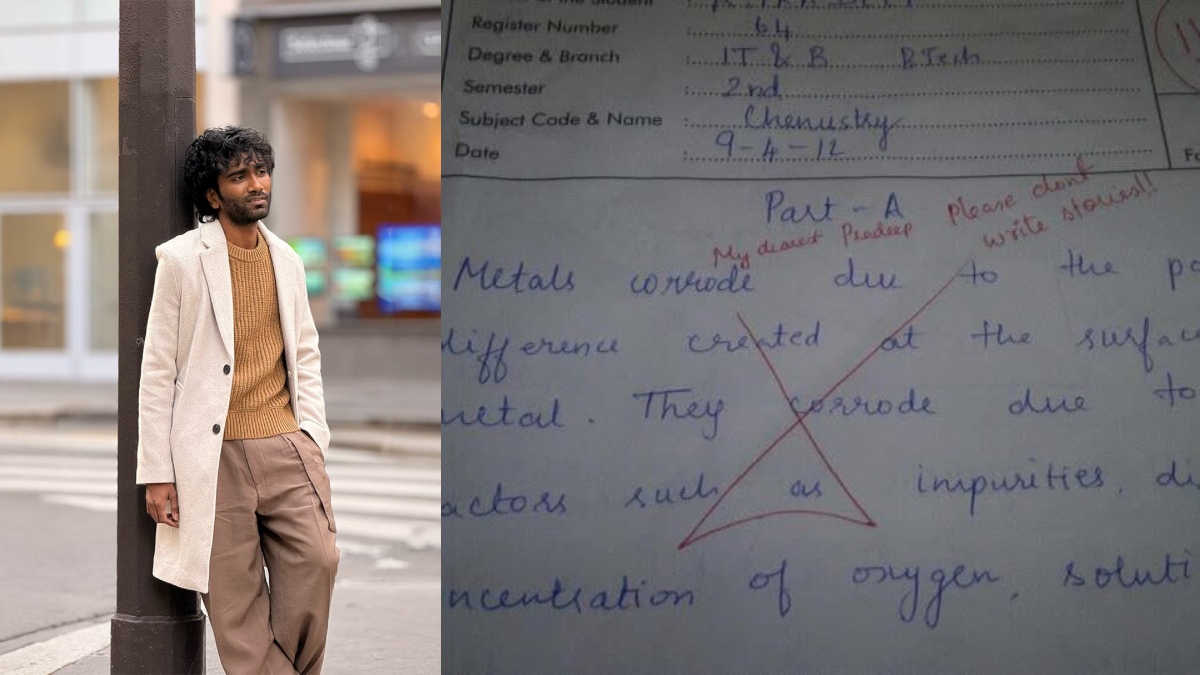 Register Number 64
Degree & Branch IT & B BTech
Semester 2nd
Subject Code & Name Chemistry
Date 9-4-12
Part - A
My dearest Pradeep please dont
write stories!!
Metals corrode due to the po
difference created at the surfac
metal. They corrode due to
actors such as impurities, di
ncentration of oxygen, soluti